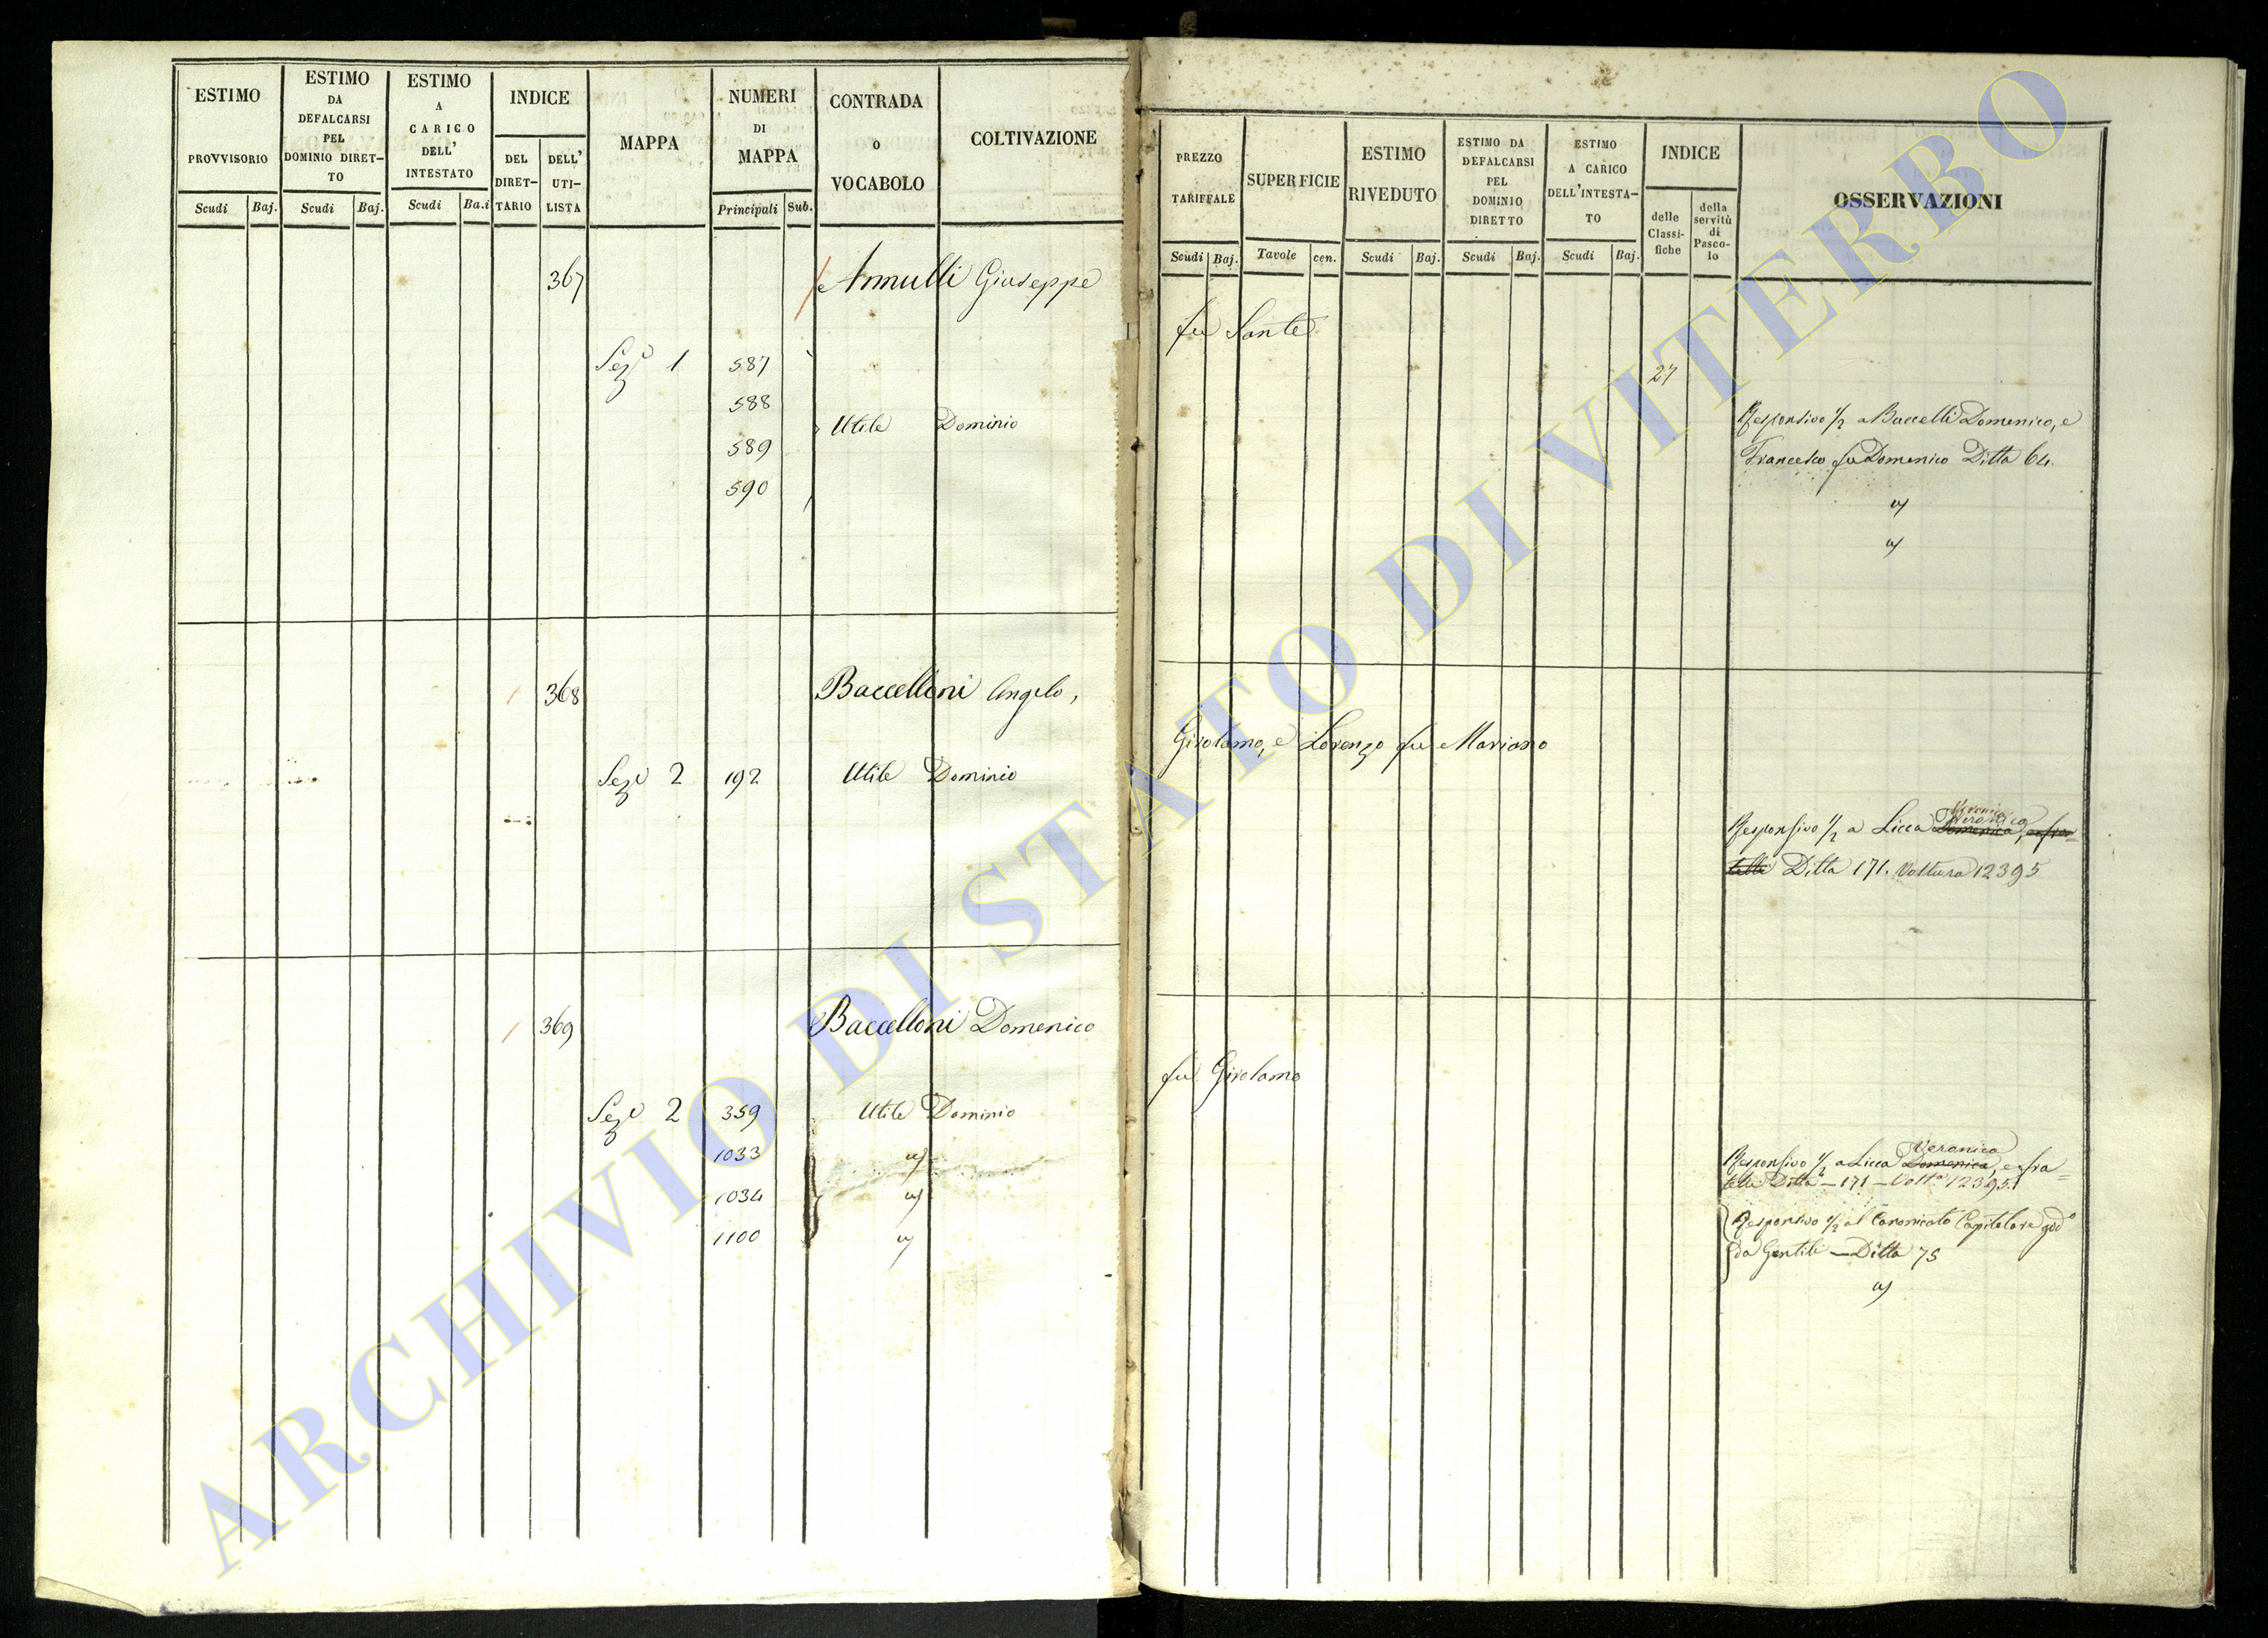 ESTIMO
PROVVISORIO
Scudi Baj.
ESTIMO
DA
DEFALCARSI
PEL
DOMINIO DIRET-
TO
Scudi Baj.
ESTIMO
A
CARICO
DELL'
INTESTATO
Scudi Ba.i
INDICE
DEL
DIRET-
TARIO
DELL'
UTI-
LISTA
MAPPA
NUMERI
DI
MAPPA
Principali Sub.
CONTRADA
O
VOCABOLO
COLTIVAZIONE
PREZZO
TARIFFALE
Scudi Baj.
SUPERFICIE
Tavole cen.
ESTIMO
RIVEDUTO
Scudi Baj.
ESTIMO DA
DEFALCARSI
PEL
DOMINIO
DIRETTO
Scudi Baj.
ESTIMO
A CARICO
DELL'INTESTA-
TO
Scudi Baj.
INDICE
delle
Classi-
fiche
della
servitù
di
Pasco-
lo
OSSERVAZIONI
367 Annulli Giuseppe
fu Sante
Sez.e 1 587
27
588
Utile Dominio
589
590
Responsivo 1/2 a Baccelli Domenico, e
Francesco fu Domenico Ditta 64.
a)
a)
368 Baccelloni Angelo,
Girolamo, e Lorenzo fu Mariano
Sez.e 2 192 Utile Dominio
Veronica
Responsivo 1/2 a Licca Domenica, e fra=
telli Ditta 171. Voltura 12395
369 Baccelloni Domenico
fu Girolamo
Sez.e 2 359 Utile Dominio
1033 a)
1034 a)
1100 a)
Veronica
Responsivo 1/2 a Licca Domenica, e fra=
telli Ditta - 171 - Volt.a 12395.
Responsivo 1/2 al Canonicato Capitolare god.o
da Gentili - Ditta 75
a)
ARCHIVIO DI STATO DI VITERBO